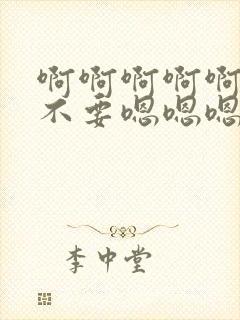 啊啊啊啊啊
不要嗯嗯嗯
李中堂